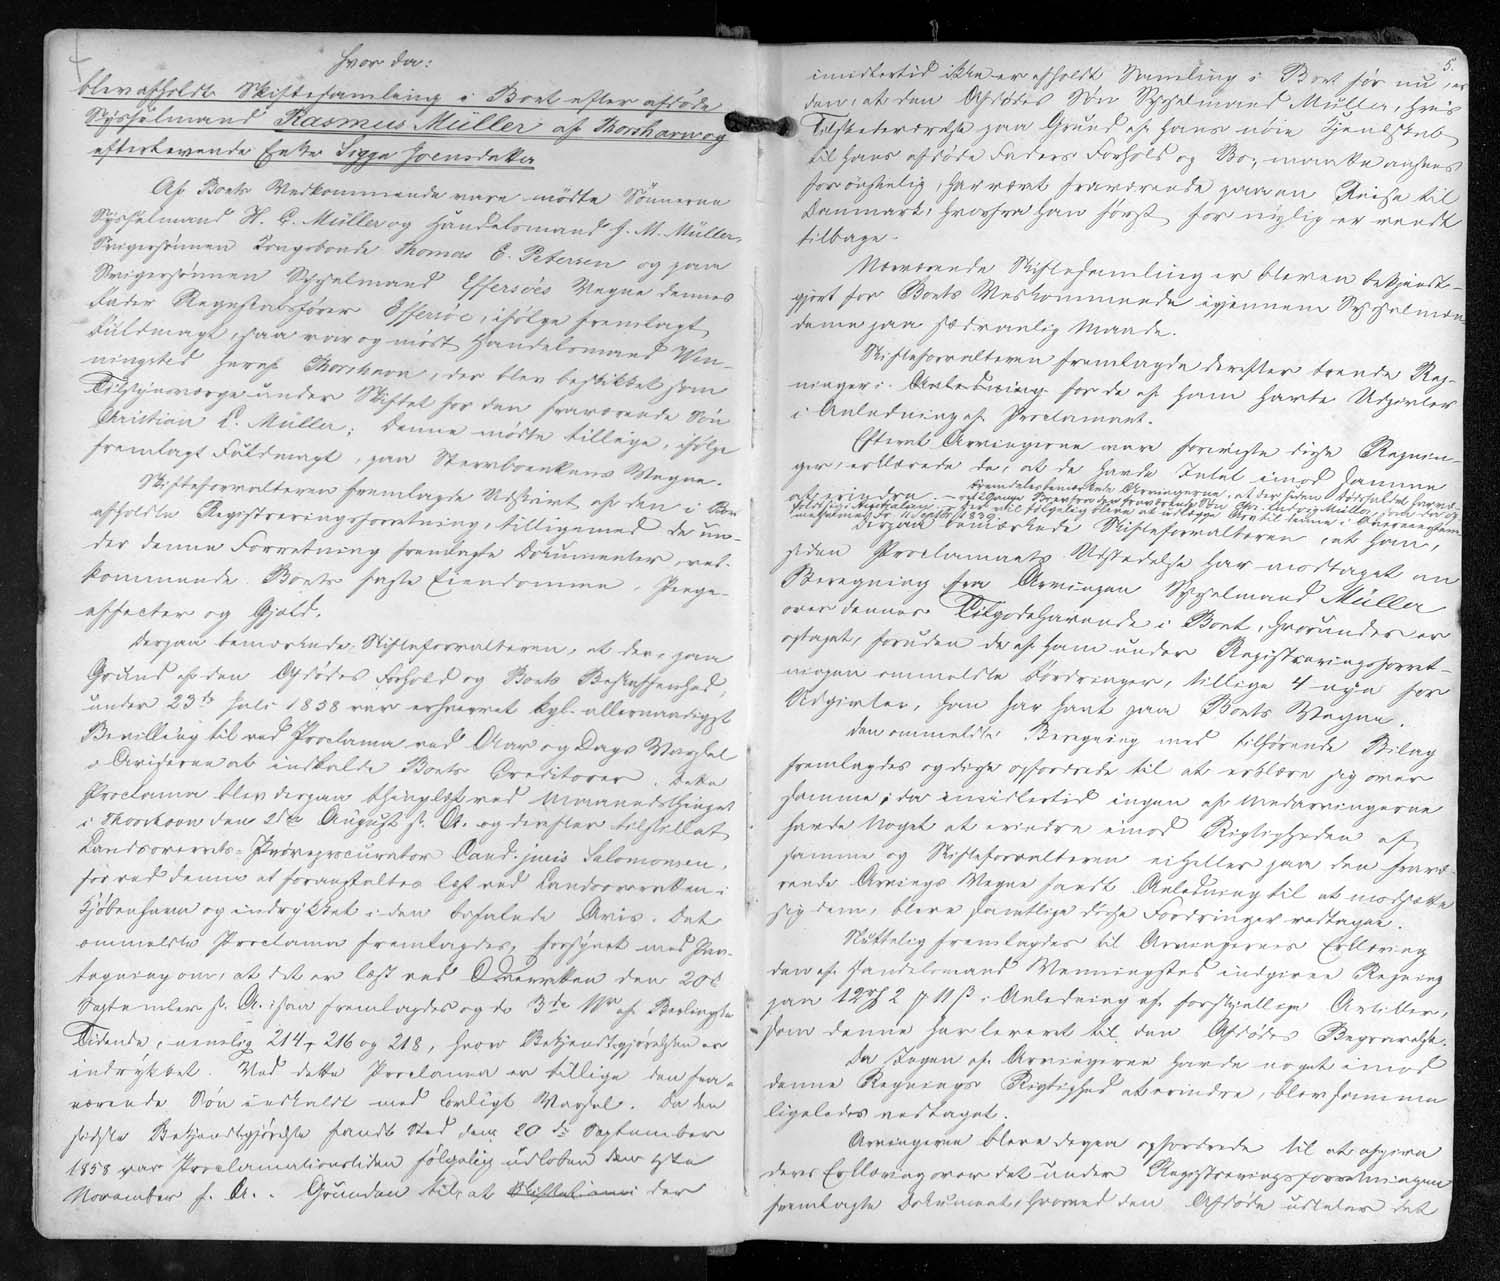 hvor da:
blev afholdt Skiftesamling i Boet efter afdøde
Sysselmand Rasmus Müller af Thorshavn og
efterlevende Enke Sigga Joensdatter
Af Boets Vedkommende vare mødte Sønnerne
Sysselmand H. C. Müller og Handelsmand J. M. Müller,
Svigersønnen Kongsbonde Thomas E. Petersen og paa
Svigersønnen Sysselmand Effersöes Vegne dennes
Fader Regnskabsfører Effersöe, ifølge fremlagt
Fuldmagt, saa var og mødt Handelsmand Wen-
ningsted heraf Thorshavn, der blev beskikket som
Tilsynsværge under Skiftet for den fraværende Søn
Christian L. Müller; denne mødte tillige, ifølge
fremlagt Fuldmagt, paa Stervboenkens Vegne.
Skifteforvalteren fremlagde Udskrivt af den i Boet
afholdte Registreringsforretning, tilligemed de un-
der denne Forretning fremlagte Dokumenter, ved-
kommende Boets faste Eiendomme, Penge-
effecter og Gjæld.
Derpaa bemærkede Skifteforvalteren, at der, paa
Grund af den Afdødes Forhold og Boets Beskaffenhed,
under 23de Juli 1858 var erhvervet kgl. allernaadigst
Bevilling til ved Proclama med Aar og Dags Varsel
i Aviserne at indkalde Boets Creditorer. Dette
Proclama blev derpaa thinglæst ved Maanedsthinget
i Thorshavn den August s. A. og derefter tilstillet
Landsoverrets-Prøveprocurator Cand. juris Salomonsen,
for ved denne at foranstaltes læst ved Landsoverretten i
Kjøbenhavn og indrykket i den befalede Avis. Det
ommeldte Proclama fremlagdes, forsynet med Paa-
tegning om, at det er læst ved Overretten den 20de
September s. A. isaa fremlagdes og de 3de Nr af Berlingske
Tidende, nemlig 214, 216 og 218, hvori Bekjendtgjørelsen er
indrykket. Ved dette Proclama er tillige den fra-
værende Søn indkaldt med lovligt Varsel. Da den
sidste Bekjendtgjørelse fandt Sted den 20de September
1858 var Proclamationstiden følgelig udløben den
November f. A. Grunden til, at der
5.
imidlertid ikke er afholdt Samling i Boet før nu, er
den, at den Afdødes Søn Sysselmand Müller, hvis
Tilstedeværelse paa Grund af hans nøie Kjendskab
til hans afdøde Faders Forhold og Bo, maatte ansees
for ønskelig, har været fraværende paa en Reise til
Danmark, hvorfra han først for nylig er vendt
tilbage.
Nærværende Skiftesamling er bleven bekjendt-
gjort for Boets Vedkommende igjennem Sysselmæn-
dene paa sædvanlig Maade.
Skifteforvalteren fremlagde derefter tvende Reg-
ninger i Anledning for de af ham havte Udgivter
i Anledning af Proclamaet.
Efterat Arvingerne vare foreviste disse Regnin-
ger, erklærede de, at de havde Intet imod samme
at erindre. — Fremdeles bemærkede Arvingerne, at der siden Dødsfaldet har væ-
ret Breve fra den fraværende Søn Chr. Ludvig Müller, som da op-
holdt sig i Australien. Der vil følgelig blive at udlægge Arv til denne i Overeensstem-
melse med Fr. 11 Septbr 1839.
Derpaa bemærkede Skifteforvalteren, at han,
siden Proclamaets Udstedelse har modtaget en
Beregning fra Arvingen Sysselmand Müller
over dennes Tilgodehavende i Boet, hvorunder er
optaget, foruden de af ham under Registreringsforret-
ningen ommeldte Fordringer, tillige 4 nye for
Udgivter, han har havt paa Boets Vegne.
Den ommeldte Beregning med tilhørende Bilag
fremlagdes og disse opfordrede til at erklære sig over
samme; da imidlertid ingen af Medarvingerne
havde Noget at erindre imod Rigtigheden af
samme og Skifteforvalteren ei heller paa den fravæ-
rende Arvings Vegne fandt Anledning til at modsætte
sig dem, bleve samtlige disse Fordringer vedtagne.
Sluttelig fremlagdes til Arvingernes Erklæring
den af Handelsmand Wenningsted indgivne Regning
paa 12 rd 2 ₰ 11 β i Anledning af forskjellige Artikler,
som denne har leveret til den Afdødes Begravelse.
Da Ingen af Arvingerne havde noget imod
denne Regnings Rigtighed at erindre, blev samme
ligeledes vedtaget.
Arvingerne bleve derpaa opfordrede til at afgive
deres Erklæring over det under Registreringsforretningen
fremlagte Dokument, hvorved den Afdøde udtaler det